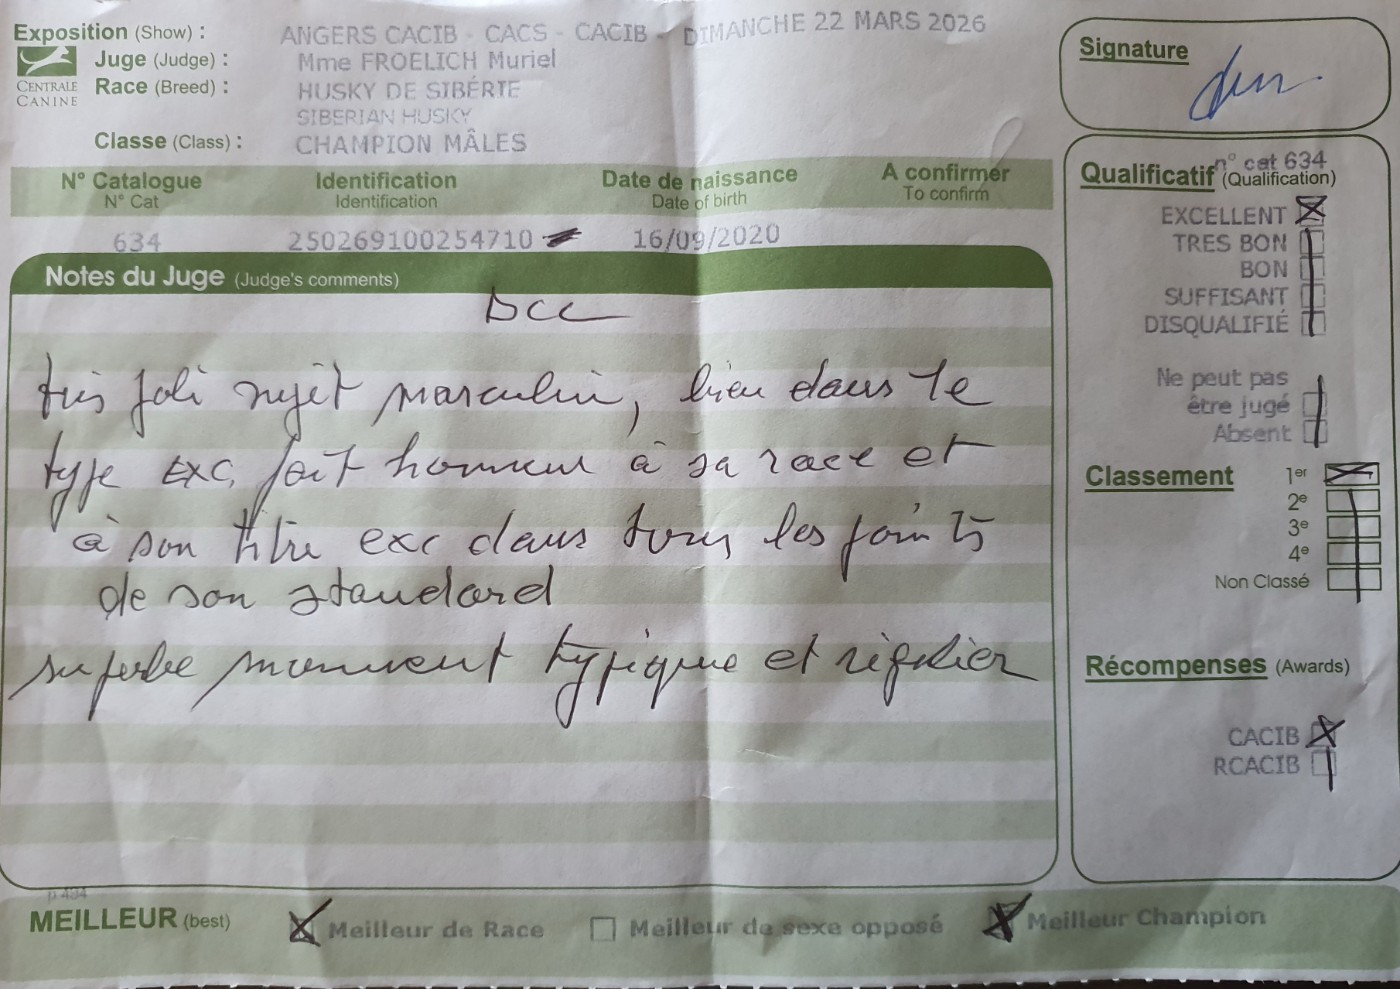 Exposition (Show) : ANGERS CACIB - CACS - CACIB - DIMANCHE 22 MARS 2026
Juge (Judge) : Mme FROELICH Muriel
CENTRALE CANINE
Race (Breed) : HUSKY DE SIBÉRIE
SIBERIAN HUSKY
Classe (Class) : CHAMPION MÂLES
N° Catalogue Identification Date de naissance A confirmer
N° Cat Identification Date of birth To confirm
634 250269100254710 16/09/2020
Notes du Juge (Judge's comments)
DCC
très joli sujet masculin, bien dans le
type exc, fait honneur à sa race et
à son titre exc dans tous les points
de son standard
superbe mouvement typique et régulier
Signature
n° cat 634
Qualificatif (Qualification)
EXCELLENT
TRES BON
BON
SUFFISANT
DISQUALIFIÉ
Ne peut pas
être jugé
Absent
Classement 1er
2e
3e
4e
Non Classé
Récompenses (Awards)
CACIB
RCACIB
p 494
MEILLEUR (best) Meilleur de Race Meilleur de sexe opposé Meilleur Champion